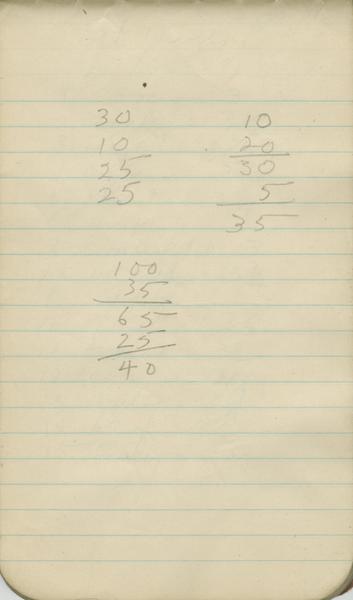 30
10
25
25
10
20
30
5
35
100
35
65
25
40